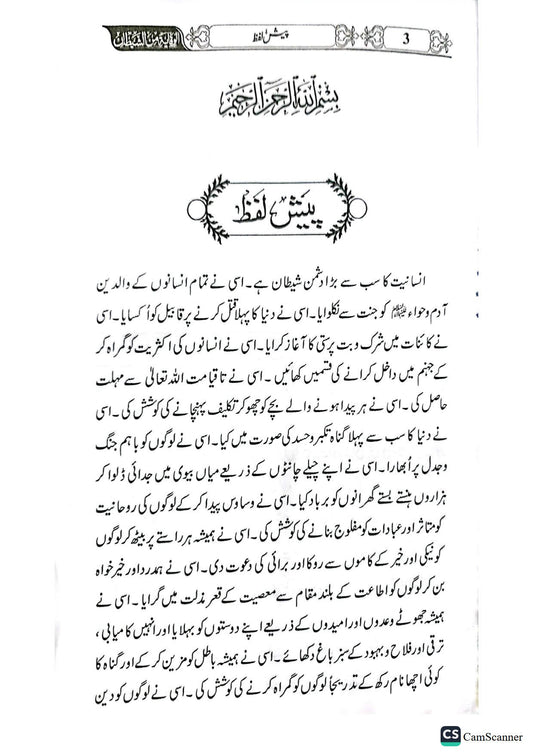 3
پیش لفظ
الوقایة من الشیطان
بسم الله الرحمن الرحيم
پیش لفظ
انسانیت کا سب سے بڑا دشمن شیطان ہے۔ اسی نے تمام انسانوں کے والدین
آدم و حواء ﷺ کو جنت سے نکلوایا۔ اسی نے دنیا کا پہلا قتل کرنے پر قابیل کو اُکسایا۔ اسی
نے کائنات میں شرک و بت پرستی کا آغاز کرایا۔ اسی نے انسانوں کی اکثریت کو گمراہ کر
کے جہنم میں داخل کرانے کی قسمیں کھائیں ۔ اسی نے تا قیامت اللہ تعالیٰ سے مہلت
حاصل کی۔ اسی نے ہر پیدا ہونے والے بچے کو چھو کر تکلیف پہنچانے کی کوشش کی۔ اسی
نے دنیا کا سب سے پہلا گناہ تکبر و حسد کی صورت میں کیا۔ اسی نے لوگوں کو باہم جنگ
و جدل پر اُبھارا۔ اسی نے اپنے چیلے چانٹوں کے ذریعے میاں بیوی میں جدائی ڈلوا کر
ہزاروں ہنستے بستے گھرانوں کو برباد کیا۔ اسی نے وساوس پیدا کر کے لوگوں کی روحانیت
کو متاثر اور عبادات کو مفلوج بنانے کی کوشش کی۔ اسی نے ہمیشہ ہر راستے پر بیٹھ کر لوگوں
کو نیکی اور خیر کے کاموں سے روکا اور برائی کی دعوت دی۔ اسی نے ہمدرد اور خیر خواہ
بن کر لوگوں کو اطاعت کے بلند مقام سے معصیت کے قعر مذلت میں گرایا ۔ اسی نے
ہمیشہ جھوٹے وعدوں اور امیدوں کے ذریعے اپنے دوستوں کو بہلایا اور انہیں کامیابی ،
ترقی اور فلاح و بہبود کے سبز باغ دکھائے۔ اسی نے ہمیشہ باطل کو مزین کر کے اور گناہ کا
کوئی اچھا نام رکھ کے تدریجاً لوگوں کو گمراہ کرنے کی کوشش کی ۔ اسی نے لوگوں کو دین
CS CamScanner